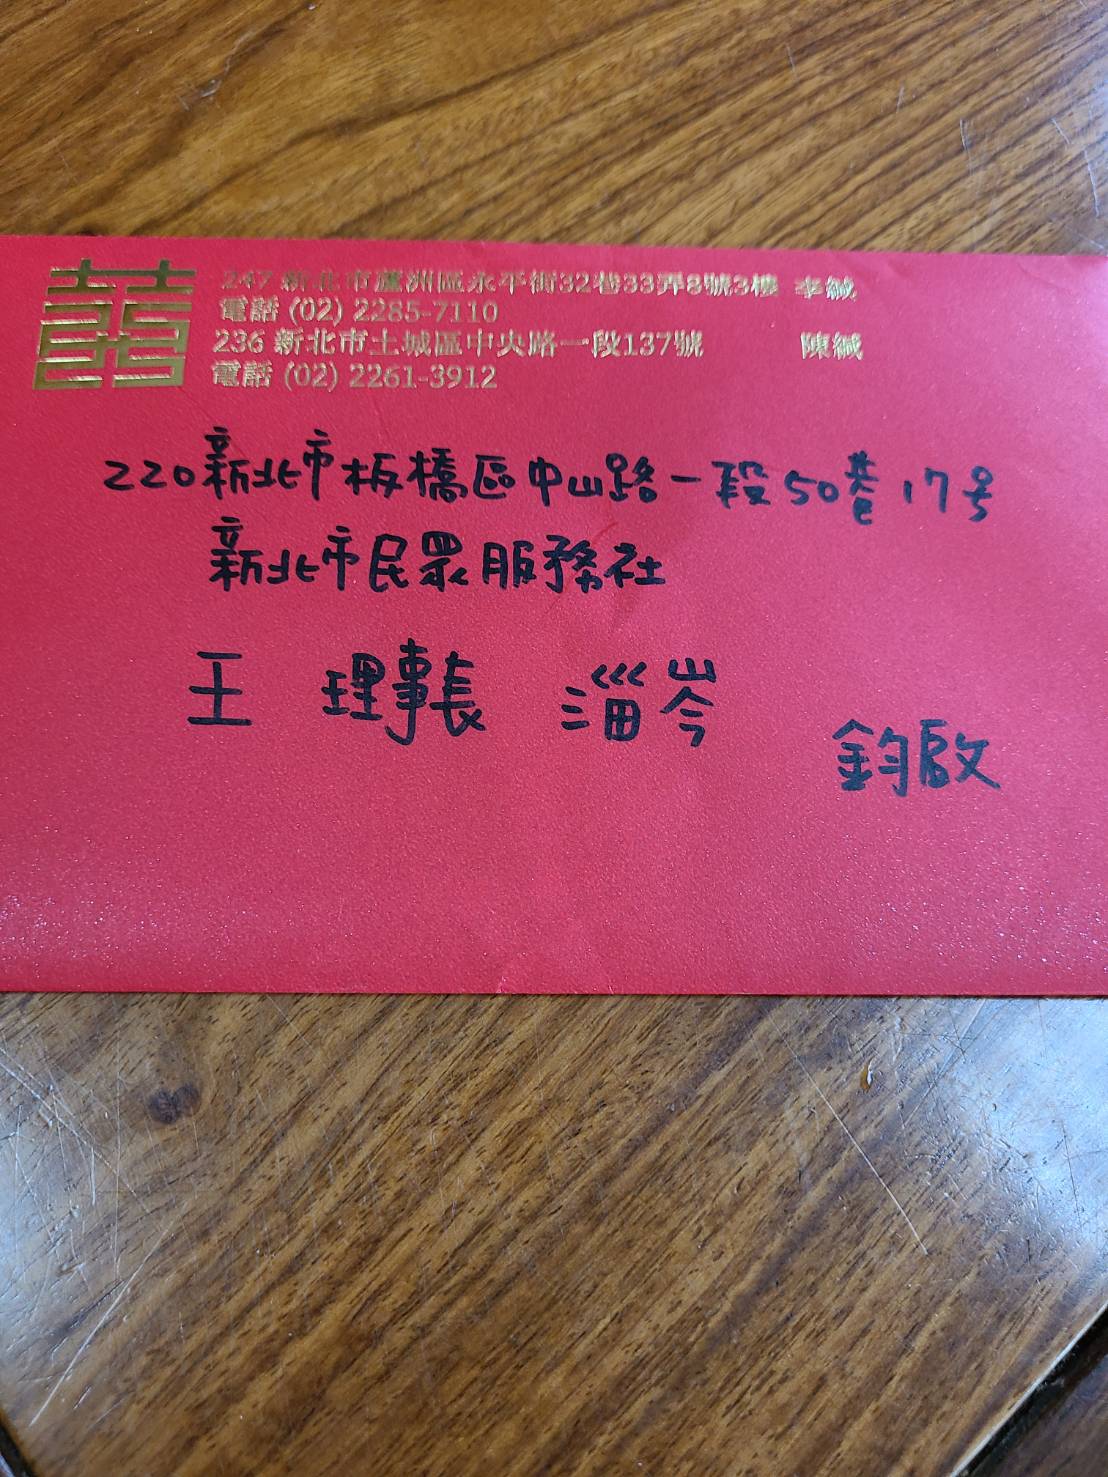 囍
247 新北市蘆洲區永平街32巷33弄8號3樓 李緘
電話 (02) 2285-7110
236 新北市土城區中央路一段137號 陳緘
電話 (02) 2261-3912
220新北市板橋區中山路一段50巷17号
新北市民眾服務社
王 理事長 淄岑
鈞啟